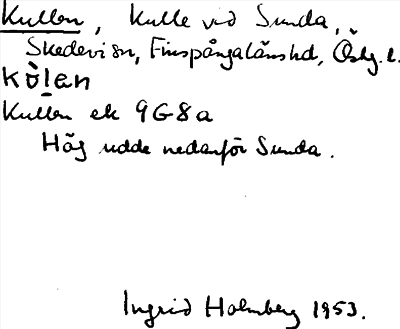 Kullen, Kulle vid Sunda,
Skedevi sn, Finspångaläns hd, Östg. l.
kòlan
Kullen ek 9G8a
Hög udde nedanför Sunda.
Ingrid Holmberg 1953.